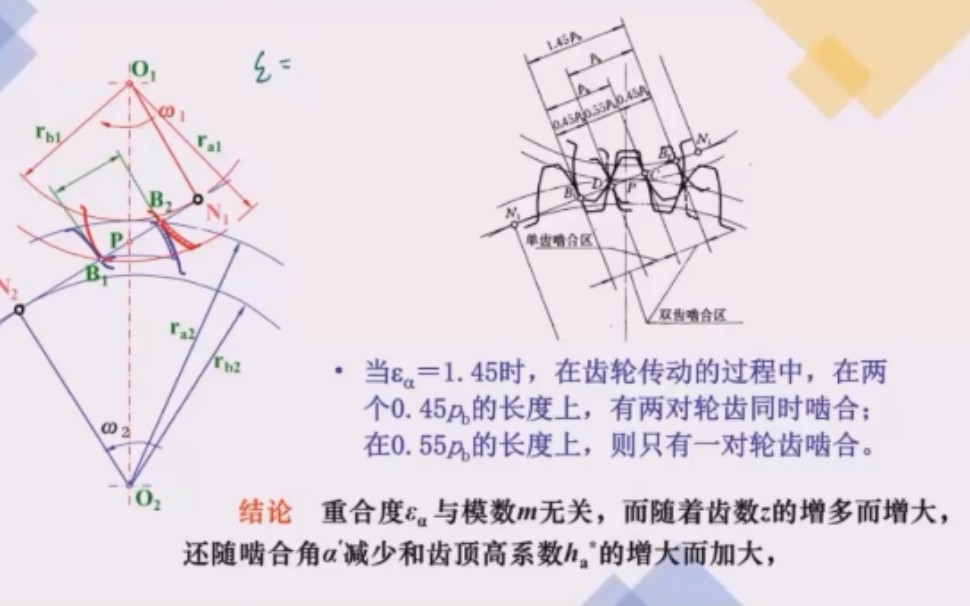 ε =
O₁
ω₁
r_b1
r_a1
B₂
N₁
P
B₁
N₂
r_a2
r_b2
ω₂
O₂
1.45Pb
Pb
Pb
0.45Pb 0.55Pb 0.45Pb
N₁
B₂ D P C B₁
N₂
单齿啮合区
双齿啮合区
• 当ε_α=1.45时，在齿轮传动的过程中，在两
个0.45p_b的长度上，有两对轮齿同时啮合；
在0.55p_b的长度上，则只有一对轮齿啮合。
结论 重合度ε_α与模数m无关，而随着齿数z的增多而增大，
还随啮合角α'减少和齿顶高系数h_a*的增大而加大，